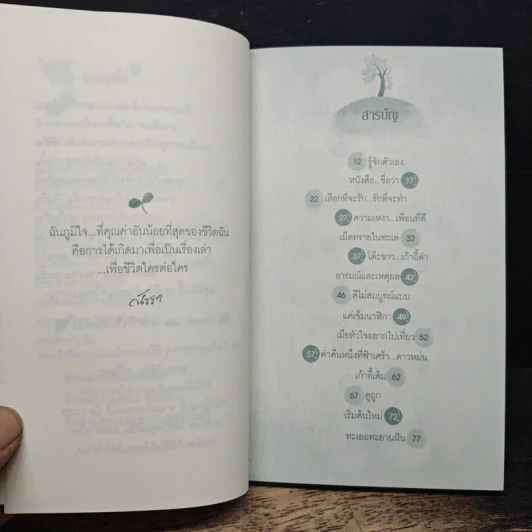 ฉันภูมิใจ...ที่คุณค่าอันน้อยที่สุดของชีวิตฉัน
คือการได้เกิดมาเพื่อเป็นเรื่องเล่า
...เพื่อชีวิตใครต่อใคร
สารบัญ
12 รู้จักตัวเอง
หนังสือ...ชื่อว่า 17
22 เลือกที่จะรัก...รักที่จะทำ
27 ความเหงา...เพื่อนที่ดี
เม็ดทรายในทะเล 32
37 โต๊ะขาว...เก้าอี้ดำ
อารมณ์และเหตุผล 42
46 ดีไม่สมบูรณ์แบบ
แค่เข็มนาฬิกา 49
เมื่อหัวใจอยากไปเที่ยว 52
57 ค่ำคืนหนึ่งที่ฟ้าเศร้า...ดาวหม่น
เก้าอี้เดิม 62
67 ดูถูก
เริ่มต้นใหม่ 72
ทะเยอทะยานฝัน 77